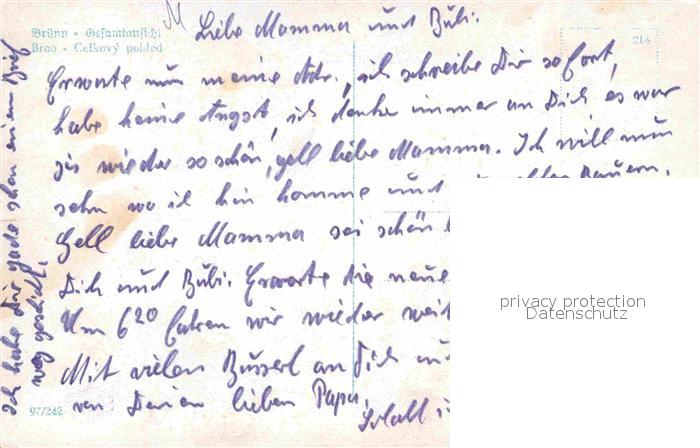 Brünn - Gesamtansicht
Brno - Celkový pohled
214
Liebe Mamma und Bubi.
Erwarte nun meine Adr., ich schreibe Dir sofort,
habe keine Angst, ich denke immer an Dich, es war
ja wieder so schön, gell liebe Mamma. Ich will nun
sehn wo ich hin komme und
Gell liebe Mamma sei schön
Dich und Bubi. Erwarte die neue
Um 6 20 fahren wir wieder weit
Mit vielen Busserl an Dich
von Deinen lieben Papa.
Ich habe Dir grade schon einen Brief
weg geschickt.
97/242
privacy protection
Datenschutz